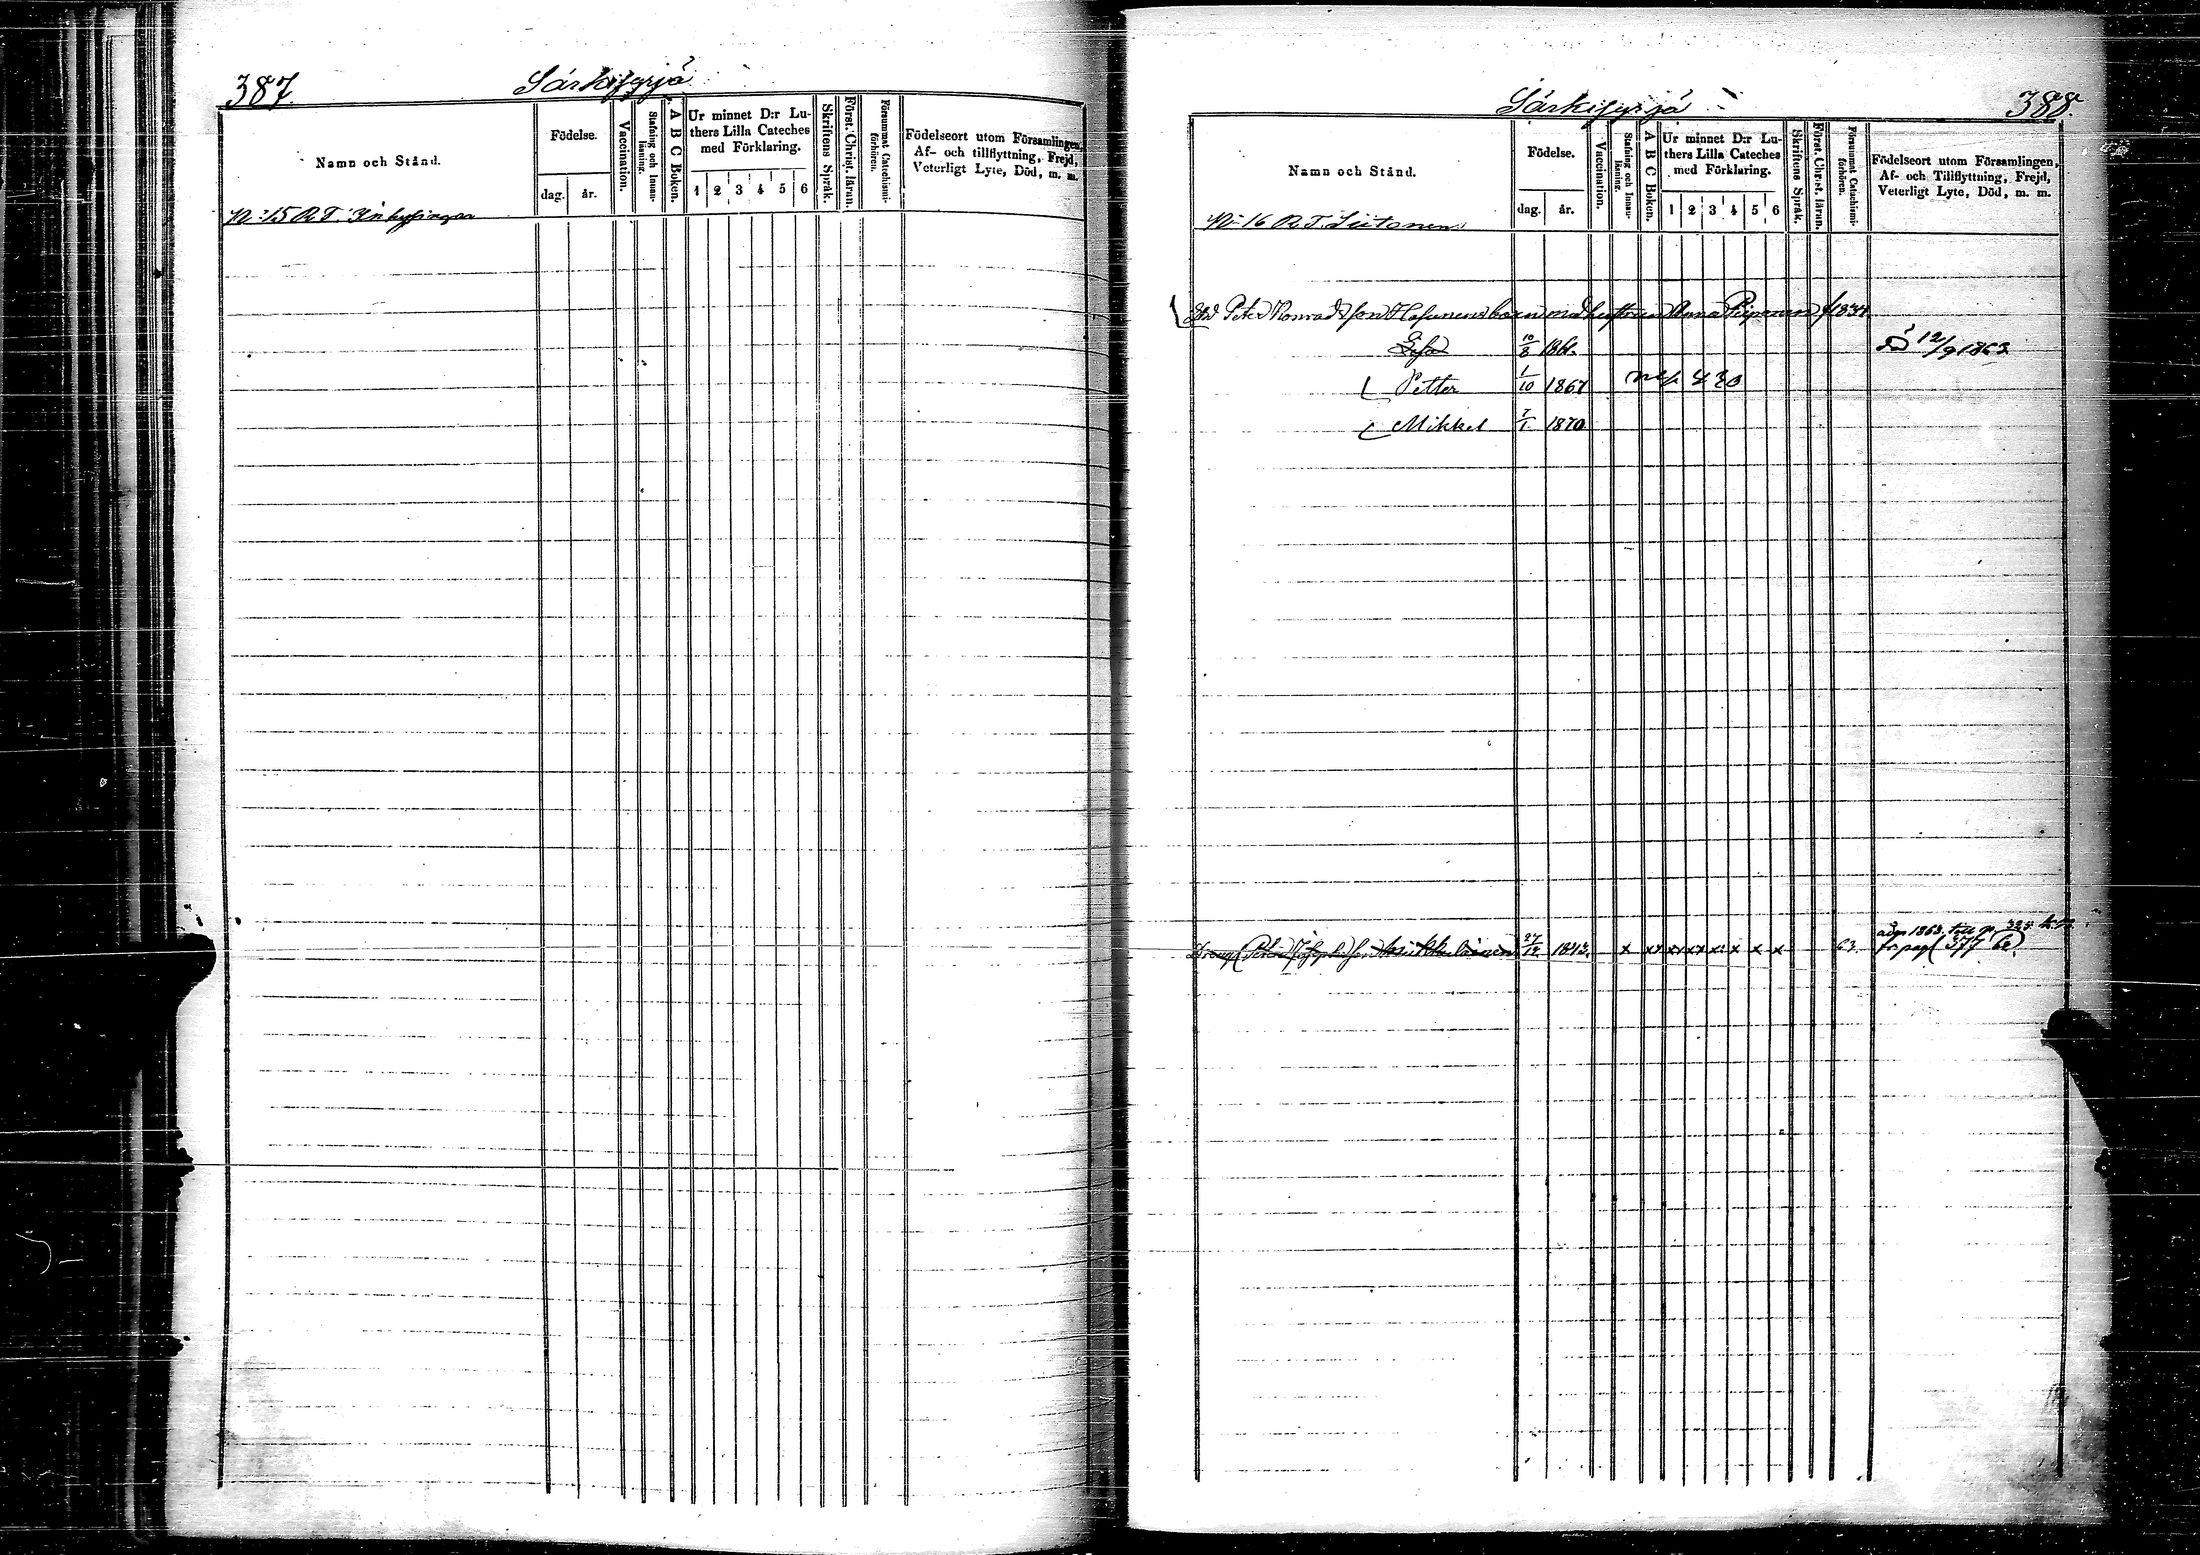 387.
Särkisyrjä
Namn och Stånd.
Födelse.
dag.
år.
Vaccination.
Stafning och Innanläsning.
A B C Boken.
Ur minnet D:r Lu-
thers Lilla Cateches
med Förklaring.
1 2 3 4 5 6
Skriftens Språk.
Först. Christ. läran.
Försummat Catechismi-
förhören.
Födelseort utom Församlingen,
Af- och tillflyttning, Frejd,
Veterligt Lyte, Död, m. m.
N:o 15 R. T.
Särkisyrjä
388.
Namn och Stånd.
Födelse.
dag.
år.
Vaccination.
Stafning och Innan-
läsning.
A B C Boken.
Ur minnet D:r Lu-
thers Lilla Cateches
med Förklaring.
1 2 3 4 5 6
Skriftens Språk.
Först. Christ. läran.
Försummat Catechismi-
förhören.
Födelseort utom Församlingen,
Af- och Tillflyttning, Frejd,
Veterligt Lyte, Död, m. m.
N:o 16 R. T. Liitonen
Peter Konradsson barn med hustrun Anna Piiponen f 1834
10/8 1861. död 12/9 1863
Petter 1/10 1867 430
Mikkel 7/1 1870
Dreng Peter Josephsson 27/12 1843. x xx xx xx x x x x 63. 1863
fr pag 377